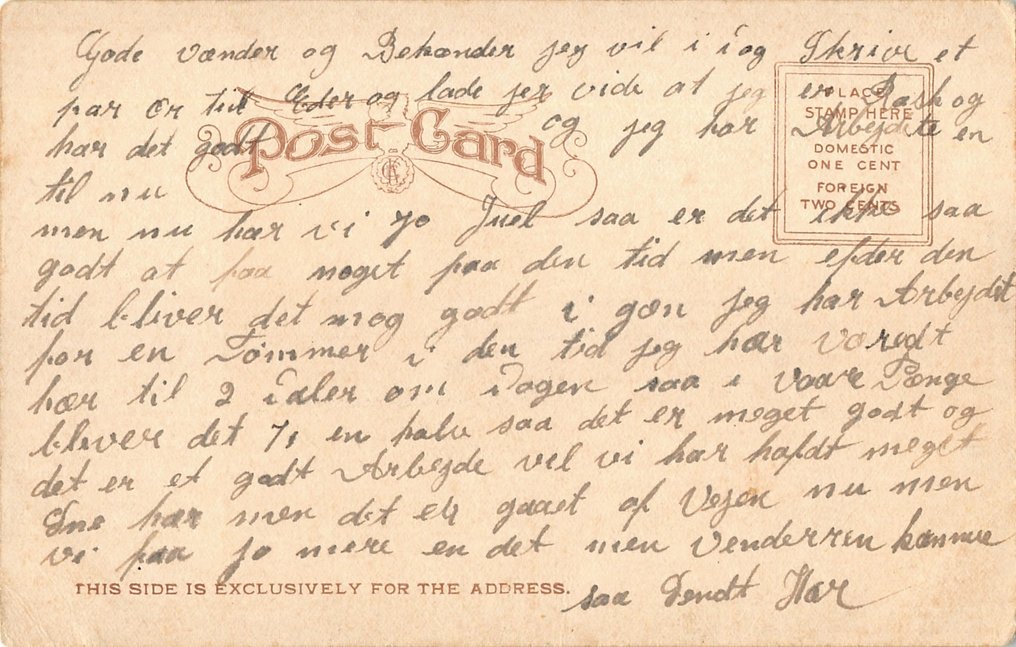 Gode Vænder og Bekænder jeg vil i dag Skrive et
par or til Eder og lade jer vide at jeg er Rask og
har det godt og jeg har Arbejdete en
til nu
men nu har vi jo Juel saa er det ikke saa
godt at faa noget paa den tid men efder den
tid bliver det mog godt i gæn jeg har Arbejdit
for en Tømmer i den tid jeg har Væredt
hær til 2 daler om dagen saa i Vaar Penge
bliver det 7 en halv saa det er meget godt og
det er et godt Arbejde vel vi har hafdt meget
Sne hær men dit er gaaet af Vejen nu men
vi faa jo mere en det men Venderren kommer
saa Sendt Hær
Post Card
PLACE
STAMP HERE
DOMESTIC
ONE CENT
FOREIGN
TWO CENTS
THIS SIDE IS EXCLUSIVELY FOR THE ADDRESS.